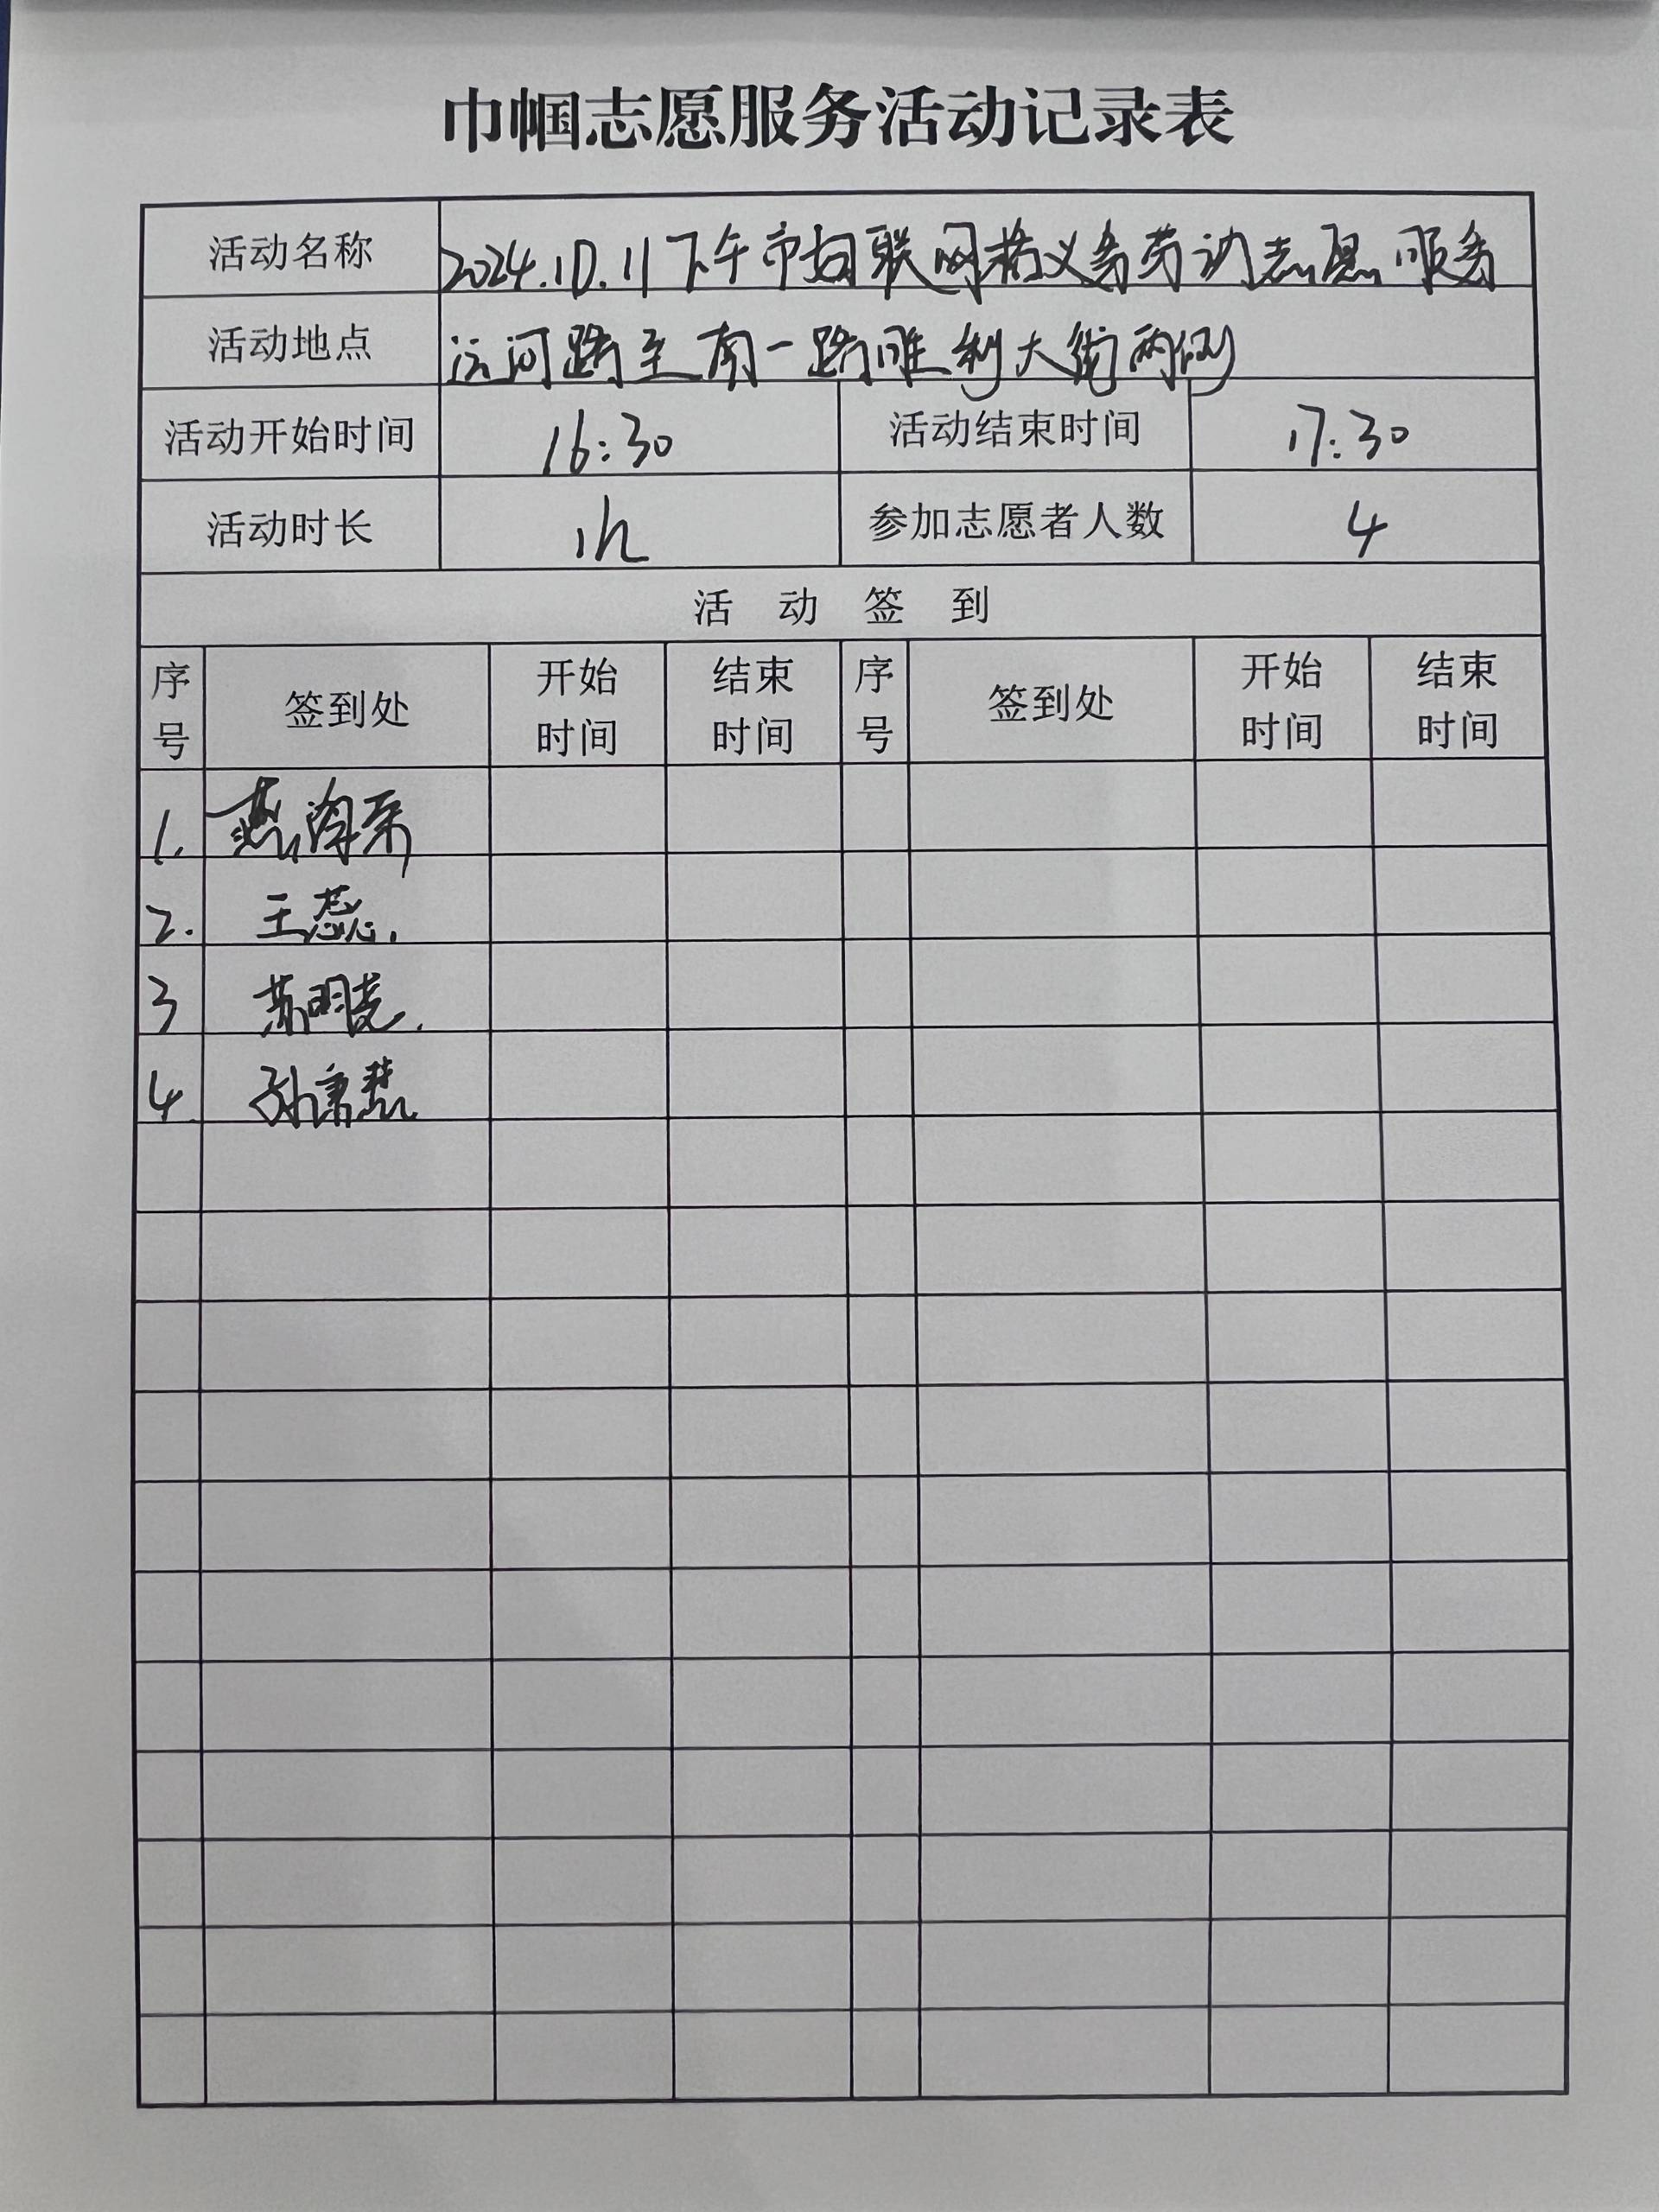 巾帼志愿服务活动记录表
活动名称 2024.10.11下午市妇联网格义务劳动志愿服务
活动地点 运河路至南一路胜利大街两侧
活动开始时间 16:30 活动结束时间 17:30
活动时长 1h 参加志愿者人数 4
活动签到
序号 签到处 开始时间 结束时间 序号 签到处 开始时间 结束时间
1. 燕
2. 王蕊.
3 苏明亮.
4. 孙康慧